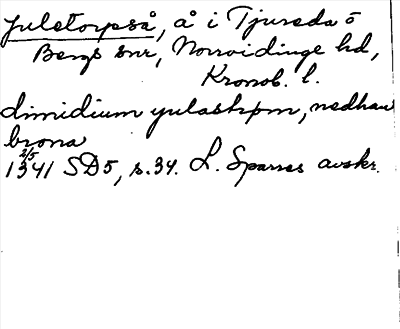 Juletorpså, å i Tjureda o
Bergs snr, Norrvidinge hd,
Kronob. l.
dimidium yulastrpm, nedhan
brona
2/5
1341 SD5, s. 34. L. Sparres avskr.